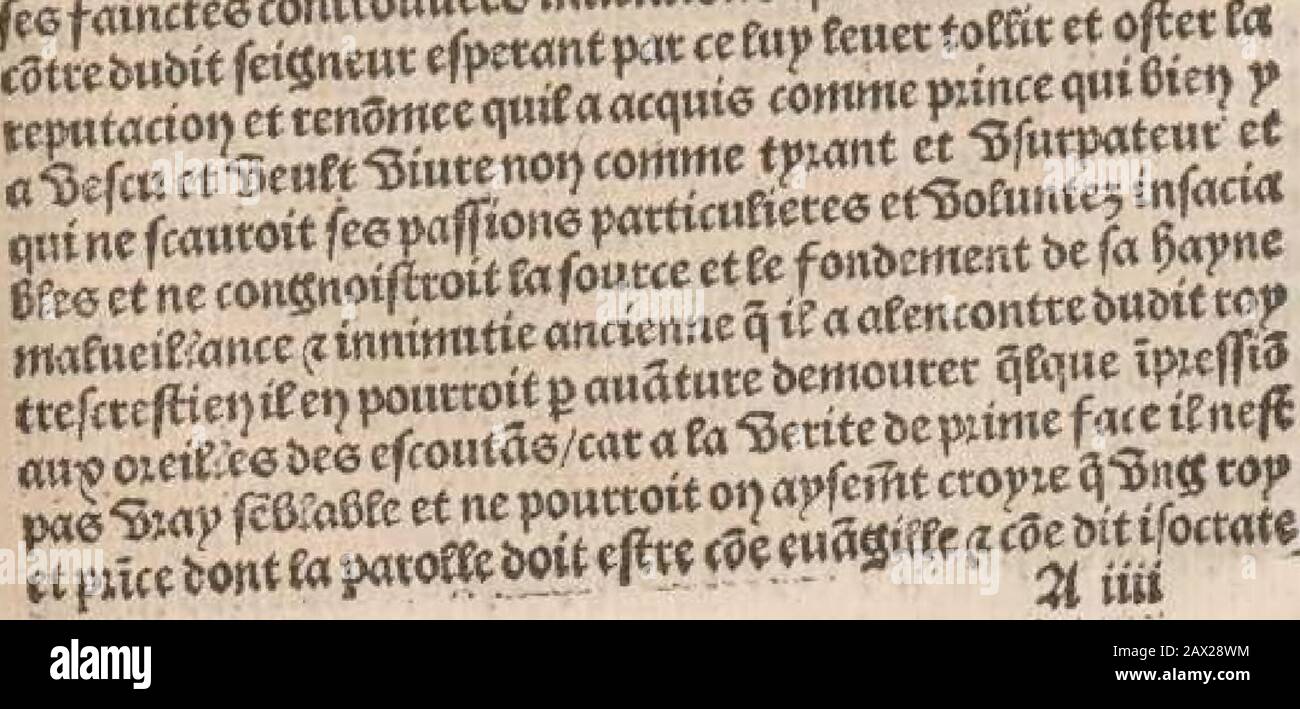 ses fainctes
cõtre dudit seigneur esperant par ce luy leuer tollir et oster la
reputacion et renõmee quil a acquis comme prince qui bien y
a vescu et veult viure non comme tyrant et vsurpateur et
qui ne scauroit ses passions particulieres et voluntez insacia
bles et ne congnoistroit la source et le fondement de sa hayne
malueillance ⁊ innimitie ancienne q̃ il a alencontre dudit roy
trescrestien il en pourroit ꝑ auãture demourer q̃lque ĩpressiõ
aux oreilles des escoutãs/car a la verite de prime face il nest
pas vray sẽblable et ne pourroit on aysem̃t croyre q̃ vng roy
et prĩce dont la parolle doit estre cõe euãgille ⁊ cõe dit isocrate
A iiii
alamy
Image ID: 2AX28WM
www.alamy.com